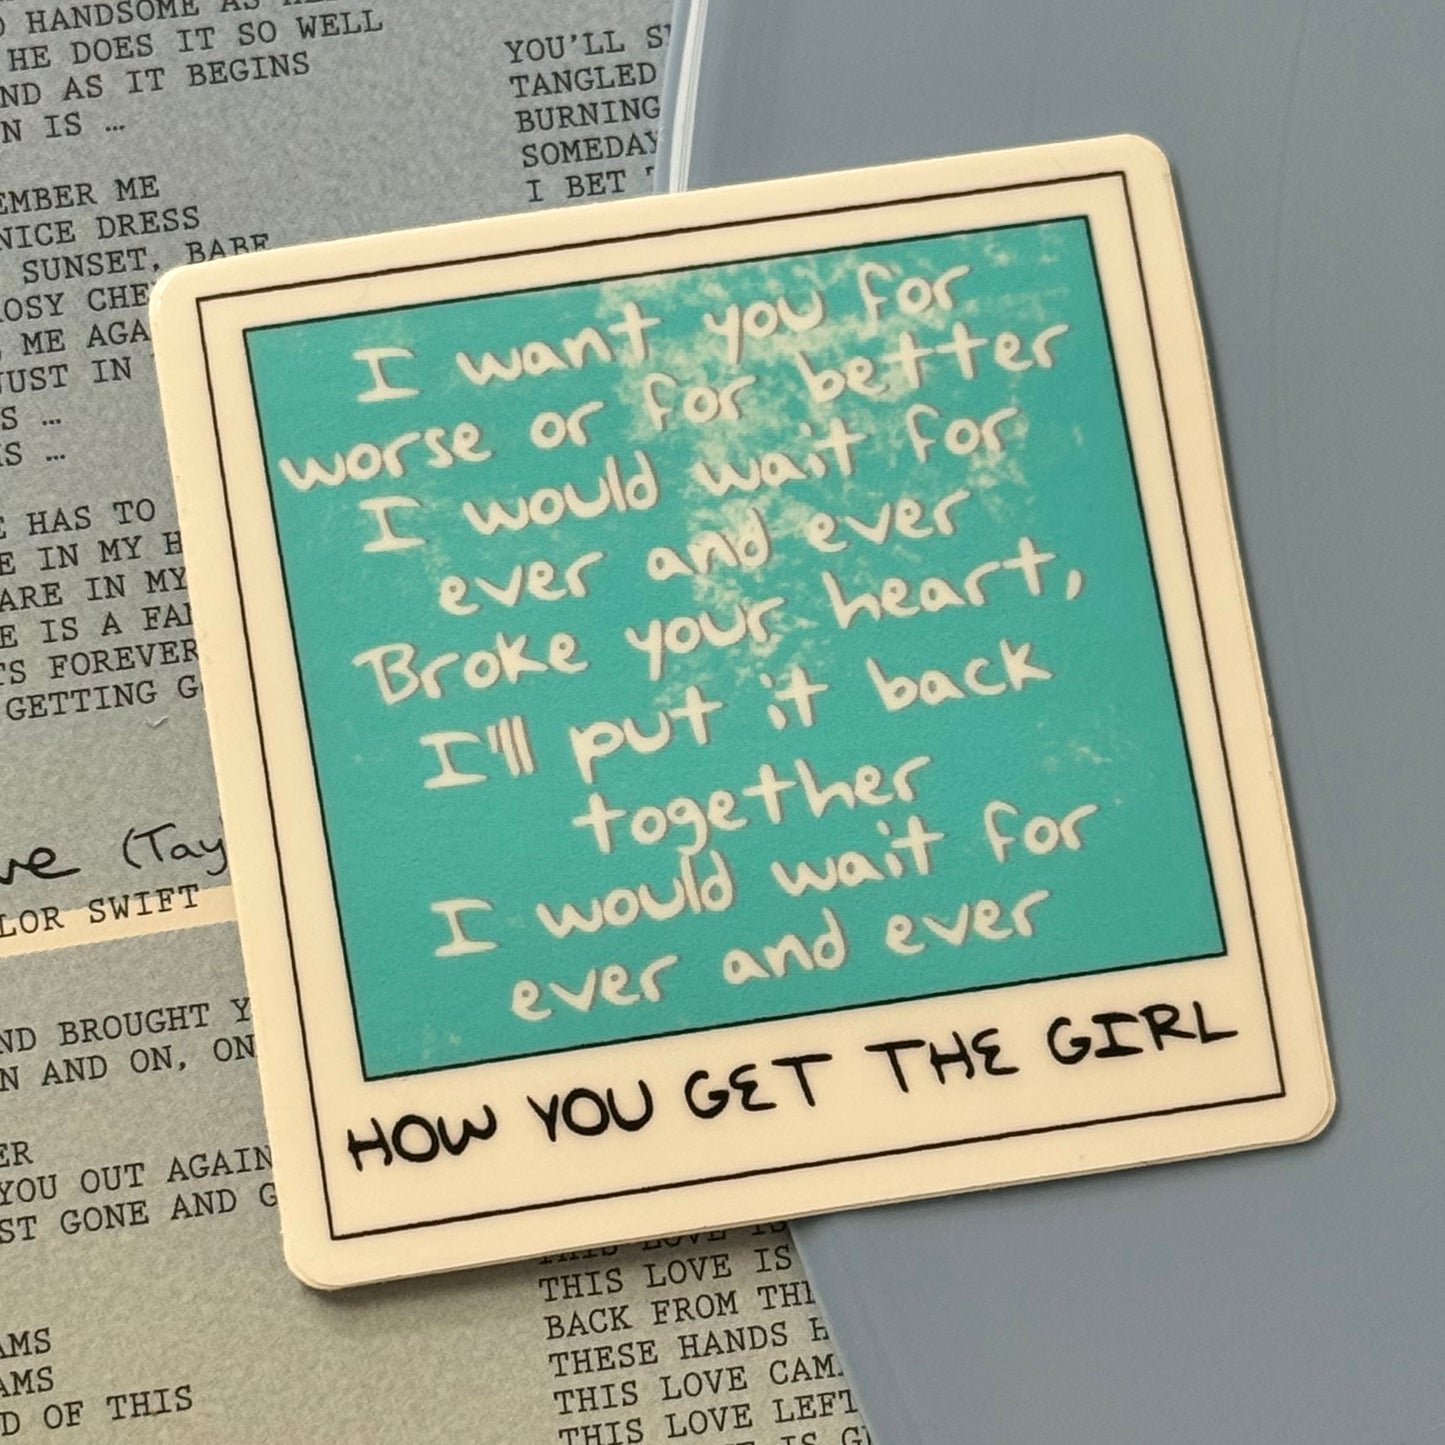 HANDSOME AS
HE DOES IT SO WELL
AS IT BEGINS
IS …
ME
NICE DRESS
SUNSET, BABE
ME
JUST IN
…
…
HAS TO
IN MY
ARE IN MY
IS A
FOREVER
GETTING
(Tay
SWIFT
BROUGHT
AND ON, ON
YOU OUT AGAIN
GONE AND
OF THIS
YOU'LL
TANGLED
BURNING
SOMEDAY
I BET
I want you for
worse or for better
I would wait for
ever and ever
Broke your heart,
I'll put it back
together
I would wait for
ever and ever
HOW YOU GET THE GIRL
THIS LOVE IS
THIS LOVE IS
BACK FROM THE
THESE HANDS
THIS LOVE
THIS LOVE LEFT
IS